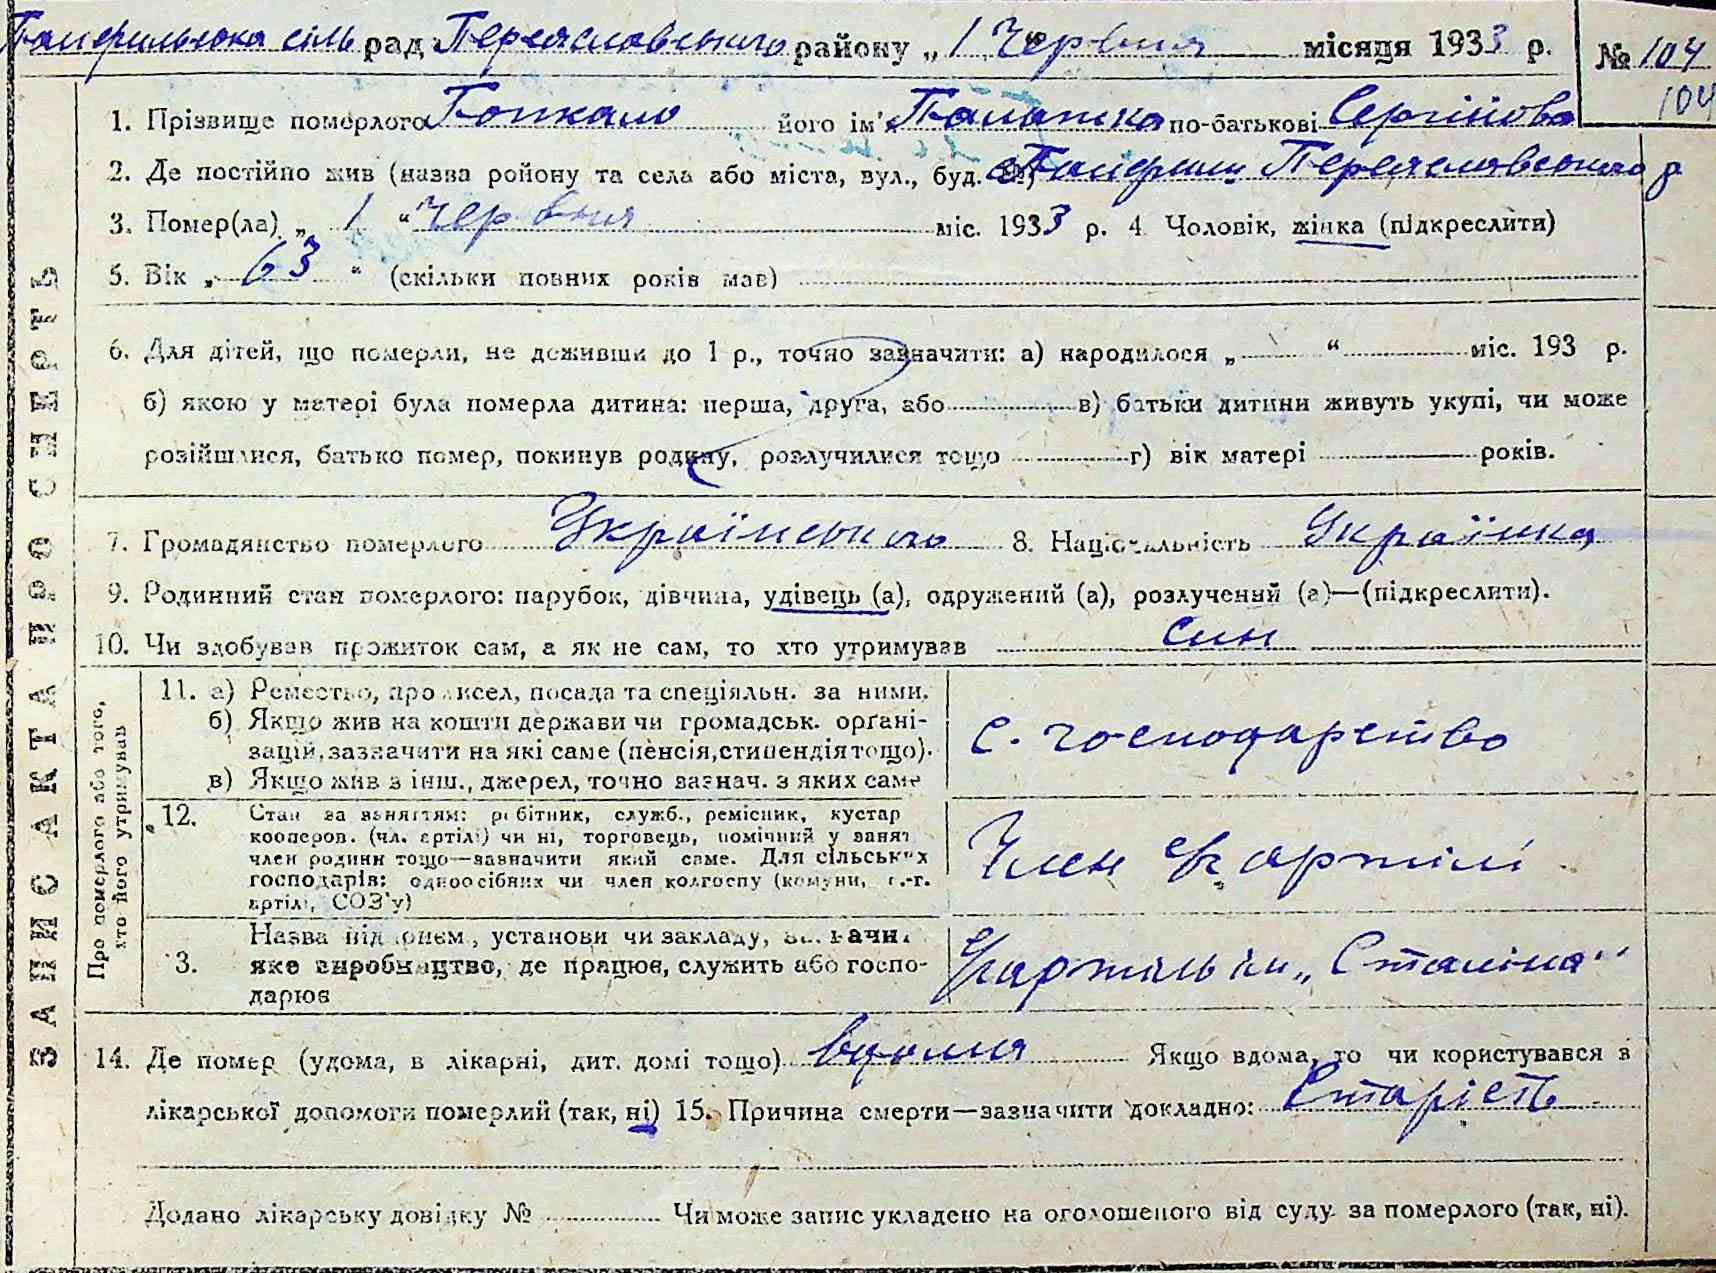 Памфильська сіль рад Переяславського району „ 1 “ Червня місяця 1933 р. № 104
104
1. Прізвище померлого Топкало його ім'я Палажка по-батькові Сергійова
2. Де постійно жив (назва ройону та села або міста, вул., буд. №) с Памфили Переяславського р
3. Помер(ла) „ 1 “ Червня міс. 1933 р. 4. Чоловік, жінка (підкреслити)
5. Вік „ 63 “ (скільки повних років мав)
6. Для дітей, що померли, не доживши до 1 р., точно зазначити: а) народилося „ “ міс. 193 р.
б) якою у матері була померла дитина: перша, друга, або в) батьки дитини живуть укупі, чи може
розійшлися, батько помер, покинув родину, розлучилися тощо г) вік матері років.
7. Громадянство померлого Українського 8. Національність Українка
9. Родинний стан померлого: парубок, дівчина, удівець (а), одружений (а), розлучений (а)—(підкреслити).
10. Чи здобував прожиток сам, а як не сам, то хто утримував син
ЗАПИС АКТА ПРО СМЕРТЬ
Про померлого або того,
хто його утримував
11. а) Ремество, промисел, посада та спеціяльн. за ними.
б) Якщо жив на кошти держави чи громадськ. органі-
зацій, зазначити на які саме (пенсія, стипендія тощо).
в) Якщо жив з інш., джерел, точно зазнач. з яких саме
с. господарство
12. Стан за заняттям: робітник, служб., ремісник, кустар
кооперов. (чл. артілі) чи ні, торговець, помічний у занят
член родини тощо—зазначити який саме. Для сільських
господарів: одноосібник чи член колгоспу (комуни, с.-г.
артілі, СОЗ'у)
Член с/г артілі
3. Назва підприєм., установи чи закладу, зазначит
яке виробництво, де працює, служить або госпо-
дарює
с/г артіль ім „Сталіна“
14. Де помер (удома, в лікарні, дит. домі тощо) вдома Якщо вдома, то чи користувався з
лікарської допомоги померлий (так, ні) 15. Причина смерти—зазначити докладно: Старість
Додано лікарську довідку № Чи може запис укладено на оголошеного від суду за померлого (так, ні).